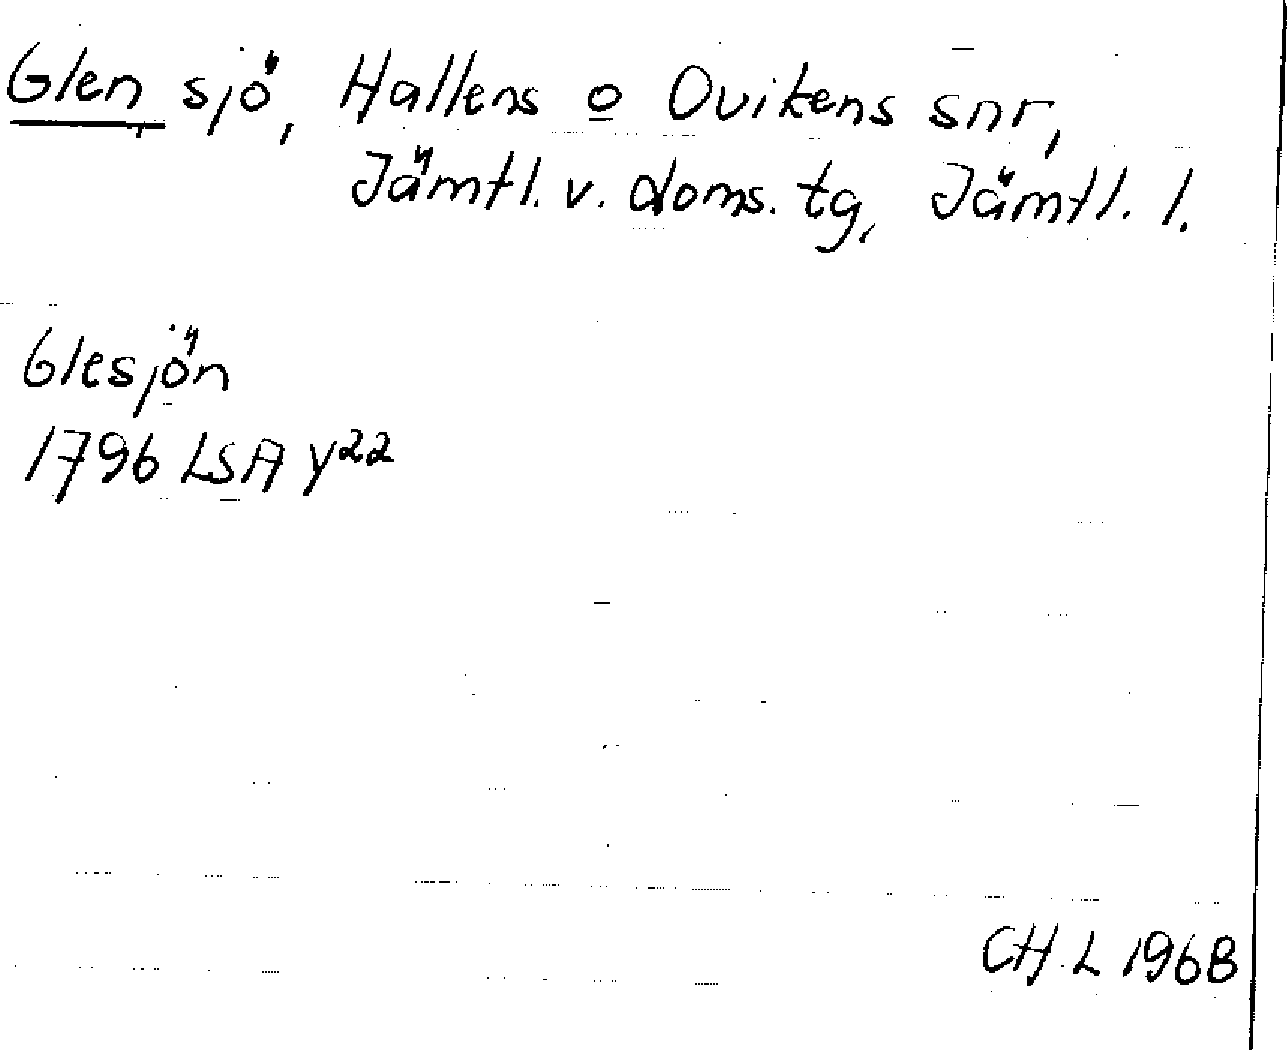 Glen, sjö, Hallens o Ovikens snr,
Jämtl. v. doms. tg, Jämtl. l.
Glesjön
1796 LSA Y22
CH. L 1968